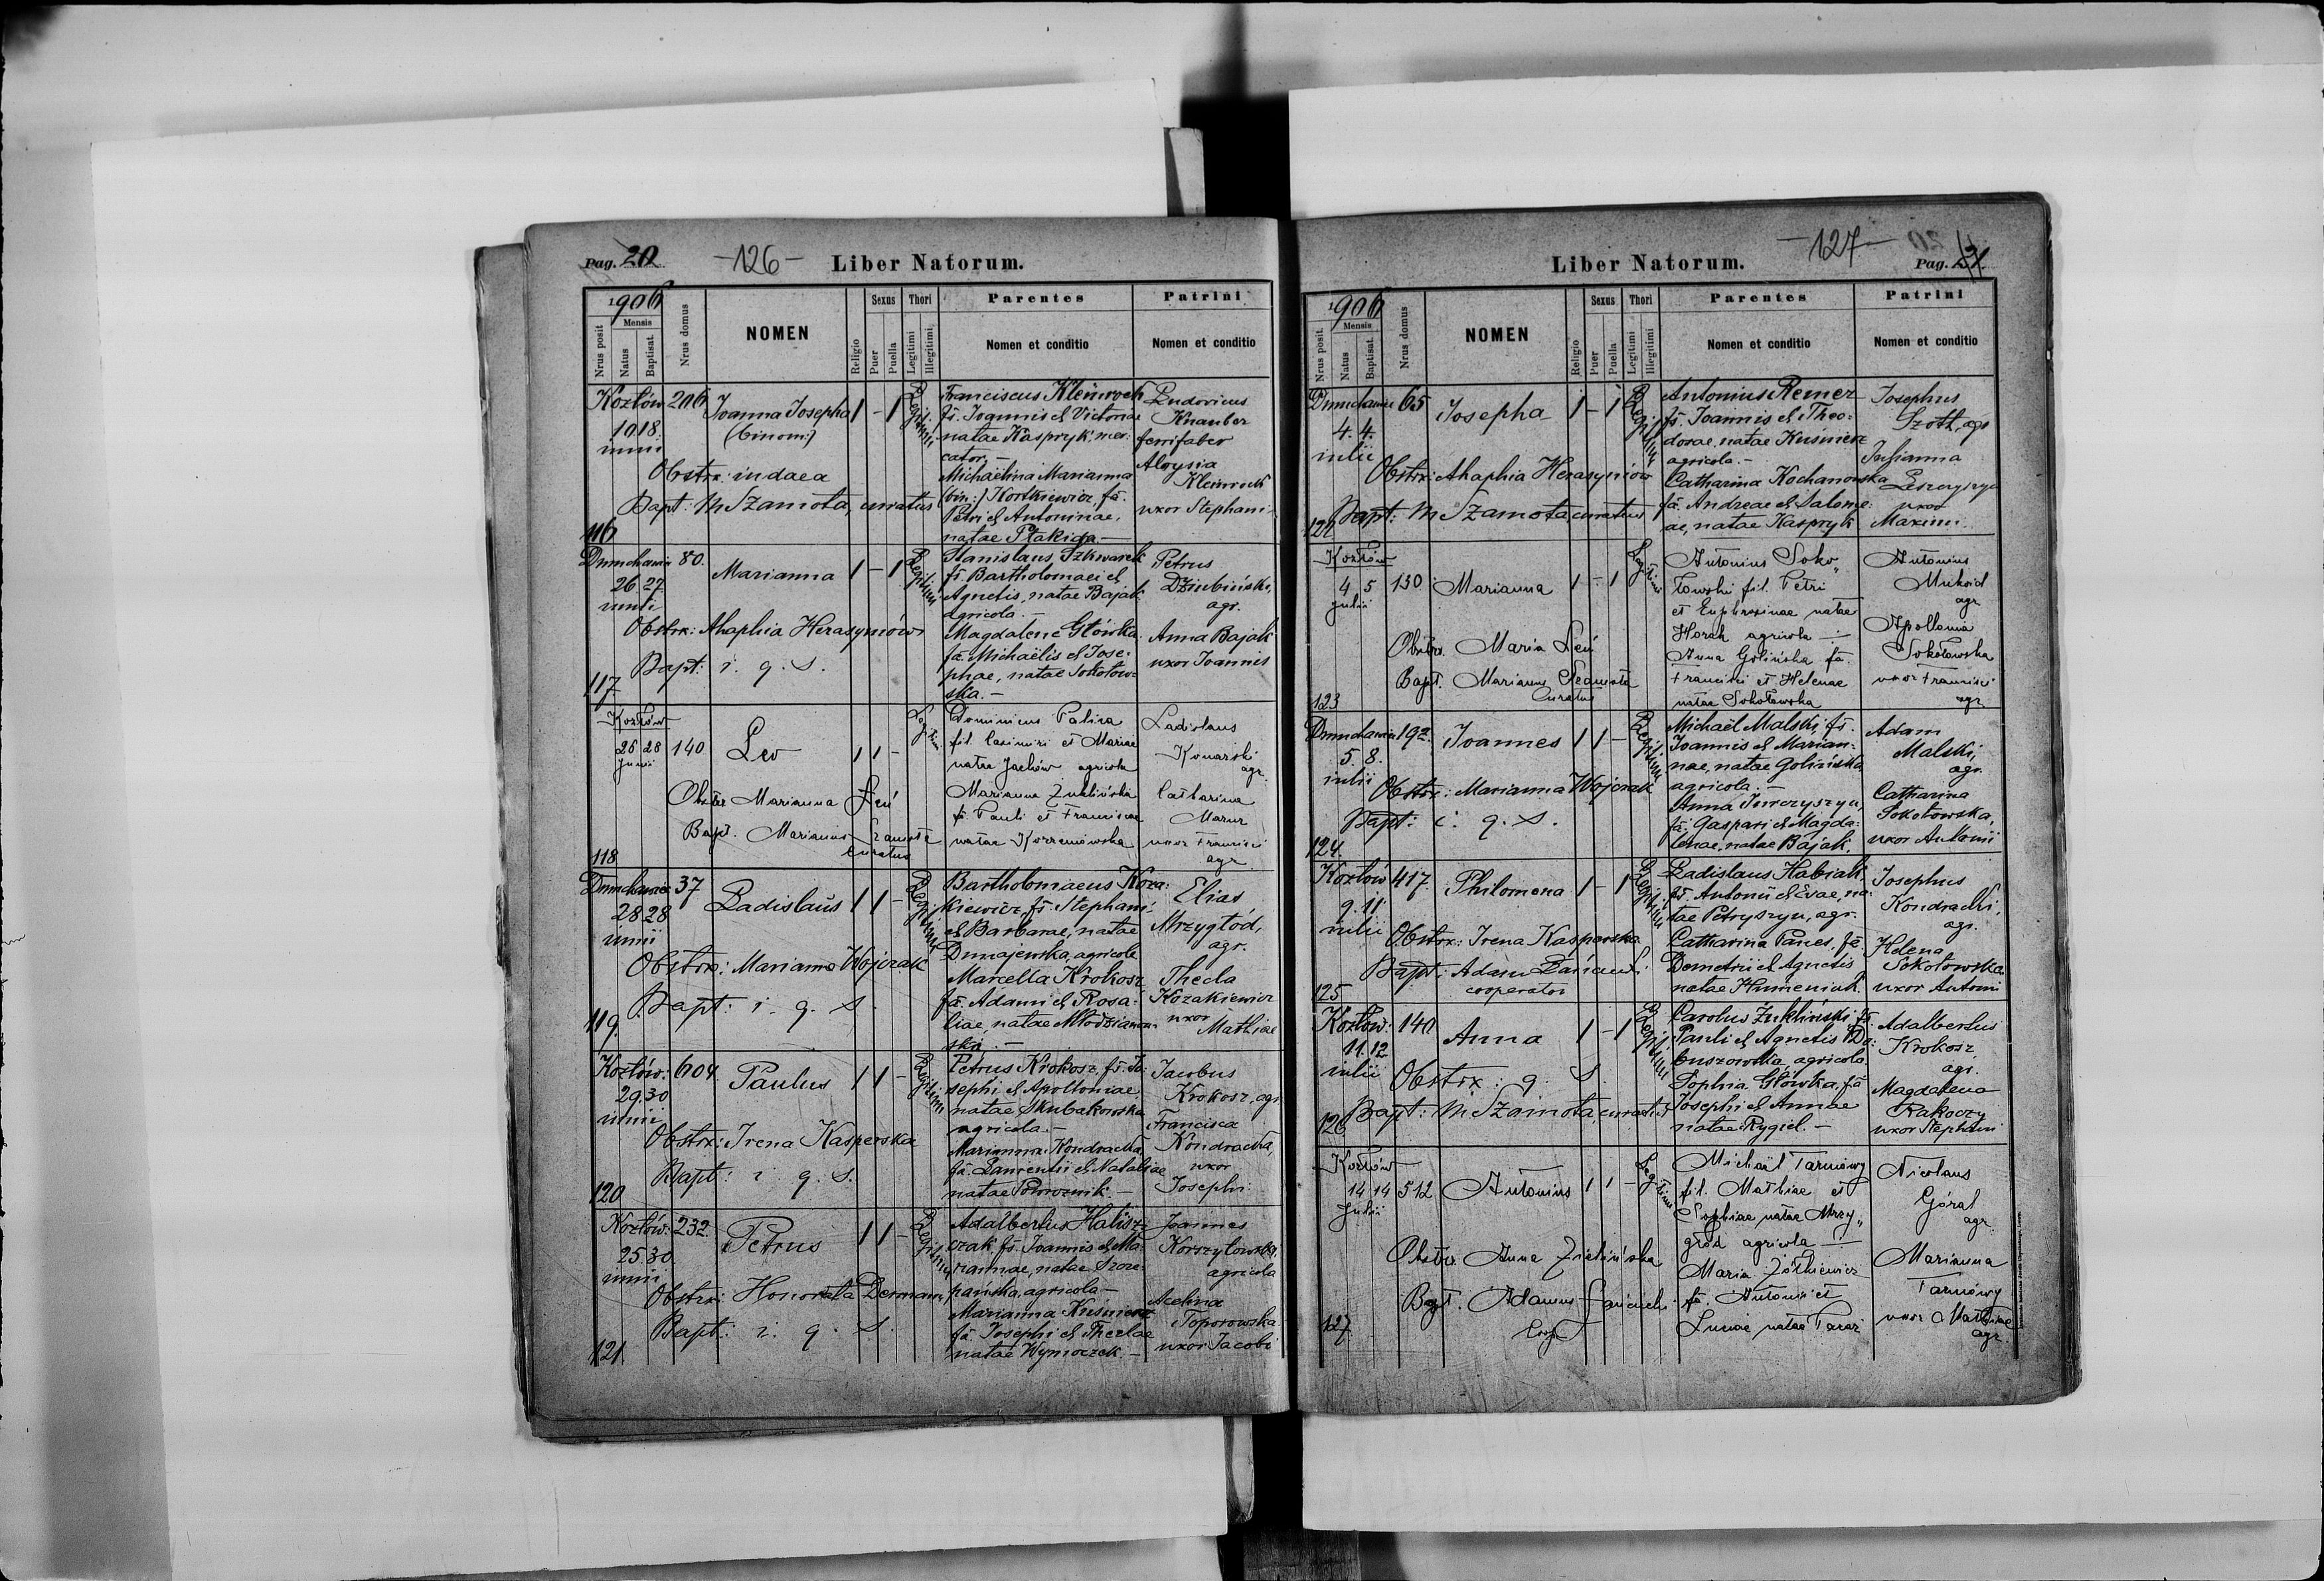 Pag. 20
-126-
Liber Natorum.
1906
Nrus posit
Mensis
Natus
Baptisat.
Nrus domus
NOMEN
Religio
Sexus
Puer
Puella
Thori
Legitimi
Illegitimi
Parentes
Nomen et conditio
Patrini
Nomen et conditio
Kozłów 206
10 18.
iunii
Joanna Josepha 1 - 1
(binom:)
Legitimi
Obstrx: iudaea
Bapt: M Szamota, curatus
116
Franciscus Kleinrock
fs. Joannis et Victoriae
natae Kaspryk, mer-
cator. -
Michaëlina Marianna
(bin:) Kostkiewicz, fa.
Petri et Antoninae,
natae Ptakida -
Ludovicus
Knauber
ferrifaber
Aloysia
Kleinrock
uxor Stephani
Dmuchawiec 80.
26 27.
iunii
Marianna 1 - 1
Legitimi
Obstrx: Ahaphia Herasymów
Bapt: i. q. s.
117
Stanislaus Szkwarek
fs. Bartholomaei et
Agnetis, natae Bajak
agricola. -
Magdalene Główka
fa. Michaëlis et Jose-
phae, natae Sokołow-
ska. -
Petrus
Dziubiński,
agr.
Anna Bajak
uxor Joannis
Kozłów
26 28 140
Junii
Leo 1 1 -
Legitimi
Obstetr Marianna Leń
Bapt. Marianus Szamota
Curatus
118
Dominicus Palica
fil. Casimiri et Mariae
natae Jachów agricola
Marianna Zuklińska
fa. Pauli et Franciscae
natae Korzeniowska
Ladislaus
Konarski
agr.
Catharina
Mazur
uxor Francisci
agr.
Dmuchawiec 37
28 28
iunii
Ladislaus 1 1 -
Legitimi
Obstrx: Marianna Wojczak
Bapt: i. q. s.
119.
Bartholomaeus Koza-
kiewicz, fs. Stephani
et Barbarae, natae
Dunajewska, agricola
Marcella Krokosz
fa. Adami et Rosa-
liae, natae Młodzianow-
ska. -
Elias
Mrzygłod,
agr.
Thecla
Kozakiewicz
uxor
Mathiae
Kozłów: 604
29.30
iunii
Paulus 1 1 -
Legitimi
Obstrx: Irena Kasperska
Bapt: i. q. s.
120
Petrus Krokosz, fs. Jo-
sephi et Apolloniae,
natae Skubakowska
agricola. -
Marianna Kondracka,
fa. Laurentii et Nataliae
natae Powroznik. -
Jacobus
Krokosz, agr
Francisca
Kondracka
uxor
Josephi
Kozłów: 232.
25 30
iunii
Petrus 1 1 -
Legitimi
Obstrx: Honorata Dermann
Bapt: i. q. s.
121.
Adalbertus Halisz-
czak fs. Joannis et Ma-
riannae, natae Szcze-
pańska, agricola -
Marianna Kuśnierz
fa. Josephi et Theclae
natae Wymoczek. -
Joannes
agricola
Acelina
Toporowska
uxor Jacobi
-127-
Liber Natorum.
Pag. 21.
1906
Nrus posit.
Mensis
Natus
Baptisat.
Nrus domus
NOMEN
Religio
Sexus
Puer
Puella
Thori
Legitimi
Illegitimi
Parentes
Nomen et conditio
Patrini
Nomen et conditio
Dmuchawiec 65
4. 4.
iulii
Josepha 1 - 1
Legitimi
Obstrx: Ahaphia Herasymów
Bapt: M Szamota curatus
122
Antonius Remez
fs. Joannis et Theo-
dorae, natae Kuśnierz
agricola. -
Catharina Kochanowska
fa. Andreae et Salome-
ae, natae Kaspryk
Josephus
Szott, agr
Julianna
Leszczyszyn
uxor
Maximi
Kozłów
4 5 130
Julii
Marianna 1 - 1
Legitimi
Obstr. Maria Leń
Bapt. Marianus Szamota
Curatus
123
Antonius Soko-
łowski fil. Petri
et Euphrosinae natae
Horak agricola -
Anna Golińska fa.
Francisci et Helenae
natae Sokołowska
Antonius
Mukoid
agr
Apollonia
Sokołowska
uxor Francisci
agr
Dmuchawiec 192.
5. 8.
iulii
Joannes 1 1 -
Legitimi
Obstrx: Marianna Wojczak
Bapt: i. q. s.
124.
Michaël Malski, fs.
Joannis et Marian-
nae, natae Golińska
agricola. -
fa. Gaspari et Magda-
lenae, natae Bajak.
Adam
Malski,
agr.
Catharina
Sokołowska,
uxor Antonii
Kozłów 417.
9. 11
iulii
Philomena 1 - 1
Legitimi
Obstrx: Irena Kasperska
Bapt: Adam Łańcucki
cooperator
125
Ladislaus Habiak,
fs. Antonii et Evae, na-
tae Petryszyn, agr.
Catharina Panes, fa.
Demetrii et Agnetis
natae Humeniuk.
Josephus
Kondracki,
agr.
Helena
Sokołowska
uxor Antoni
Kozłów: 140
11. 12
iulii
Anna 1 - 1
Legitimi
Obstrx: q. s.
Bapt: M Szamota, curatus
126
Carolus Żukliński fs.
Pauli et Agnetis Do-
buszowska, agricola
Sophia Główka, fa
Josephi et Annae
natae Rygiel. -
Adalbertus
Krokosz
agr.
Magdalena
Rakoczy
uxor Stephani
Kozłów
14 14 512
Julii
Antonius 1 1 -
Legitimi
Obstr. Anna Zielińska
Bapt. Adamus Łańcucki
Coop
127.
Michaël Tarnówy
fil. Mathiae et
Sophiae natae Mrzy-
gród agricola -
Maria Żółkiewicz
fa. Antonii et
Luciae natae Taraz
Nicolaus
Góral
agr
Marianna
Tarnówy
uxor Mathiae
agr